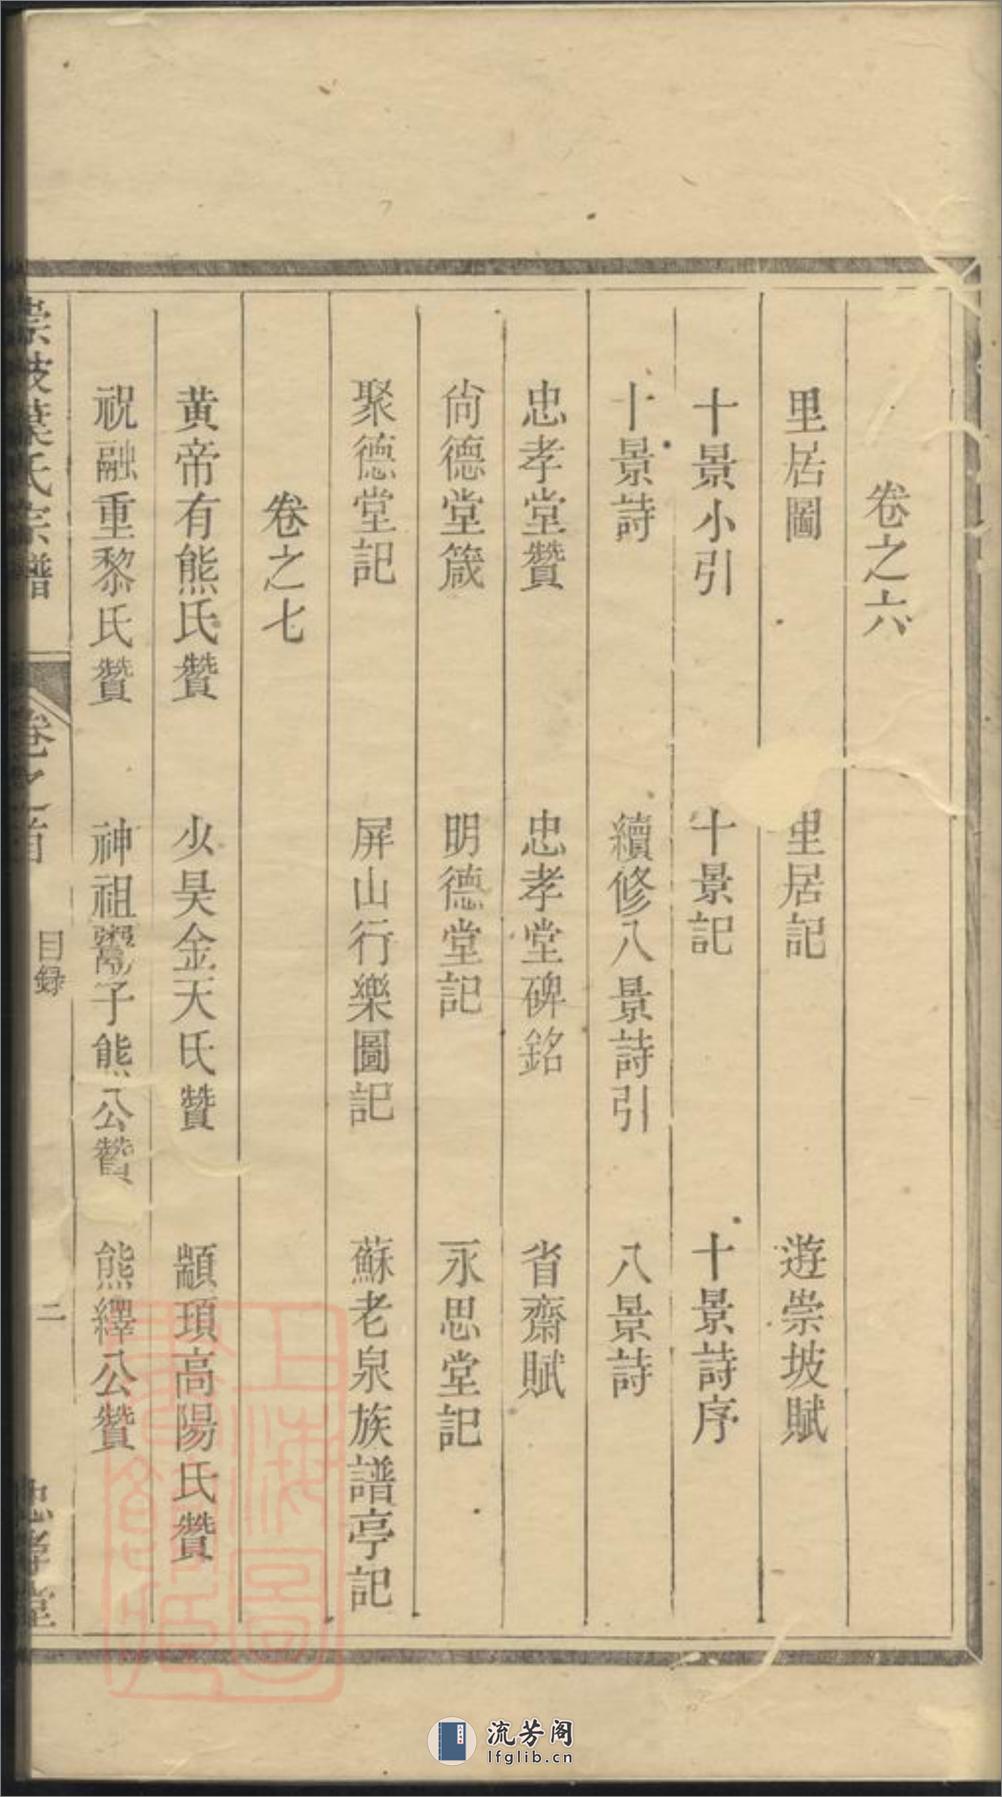 卷之六
里居圖 里居記 遊崇坡賦
十景小引 十景記 十景詩序
十景詩 續修八景詩引 八景詩
忠孝堂贊 忠孝堂碑銘 省齋賦
尙德堂箴 明德堂記 永思堂記
聚德堂記 屏山行樂圖記 蘇老泉族譜亭記
卷之七
黄帝有熊氏贊 少昊金天氏贊 顓頊高陽氏贊
祝融重黎氏贊 神祖鬻子熊公贊 熊繹公贊
崇坡葉氏宗譜 卷之首 目録 二 忠孝堂
上海圖書館藏
流芳阁
lfglib.cn